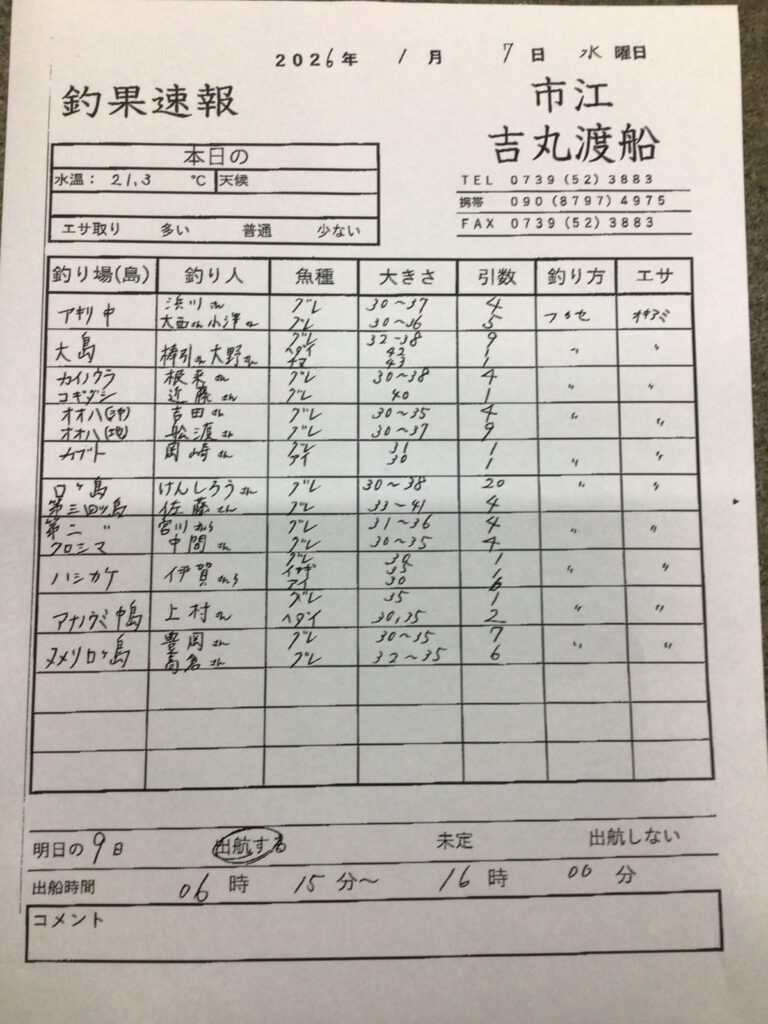 2026年 1月 7日 水曜日
釣果速報
市江
吉丸渡船
本日の
水温: 21,3 ℃ 天候
エサ取り 多い 普通 少ない
TEL 0739(52)3883
携帯 090(8797)4975
FAX 0739(52)3883
釣り場(島) 釣り人 魚種 大きさ 引数 釣り方 エサ
アキリ中 浜川さん グレ 30~37 4 フカセ オキアミ
大西さん小津さん グレ 30~36 5
大島 棒引さん大野さん グレ 32-38 9 〃 〃
ヘダイ 42 1
43 1
カイノウラ 根来さん グレ 30~38 4 〃 〃
コギダシ 近藤さん グレ 40 1
オオハ(沖) 吉田さん グレ 30~35 4 〃 〃
オオハ(地) 舩渡さん グレ 30~37 9
カブト 岡崎さん グレ 31 1 〃 〃
アイ 30 1
ロヶ島 けんしろうさん グレ 30~38 20 〃 〃
第三四ツ島 佐藤さん グレ 33~41 4
第二 〃 宮川さん グレ 31~36 4 〃 〃
クロシマ 中間さん グレ 30~35 4
ハシカケ 伊賀さん グレ 30 1 〃 〃
イサギ 35 1
アイ 30 6
アナノウミ中島 上村さん グレ 35 1 〃 〃
ヘダイ 30,35 2
ヌメリロヶ島 豊岡さん グレ 30~35 7 〃 〃
高倉さん グレ 32~35 6
明日の9日 出航する 未定 出航しない
出船時間 06時 15分~ 16時 00分
コメント